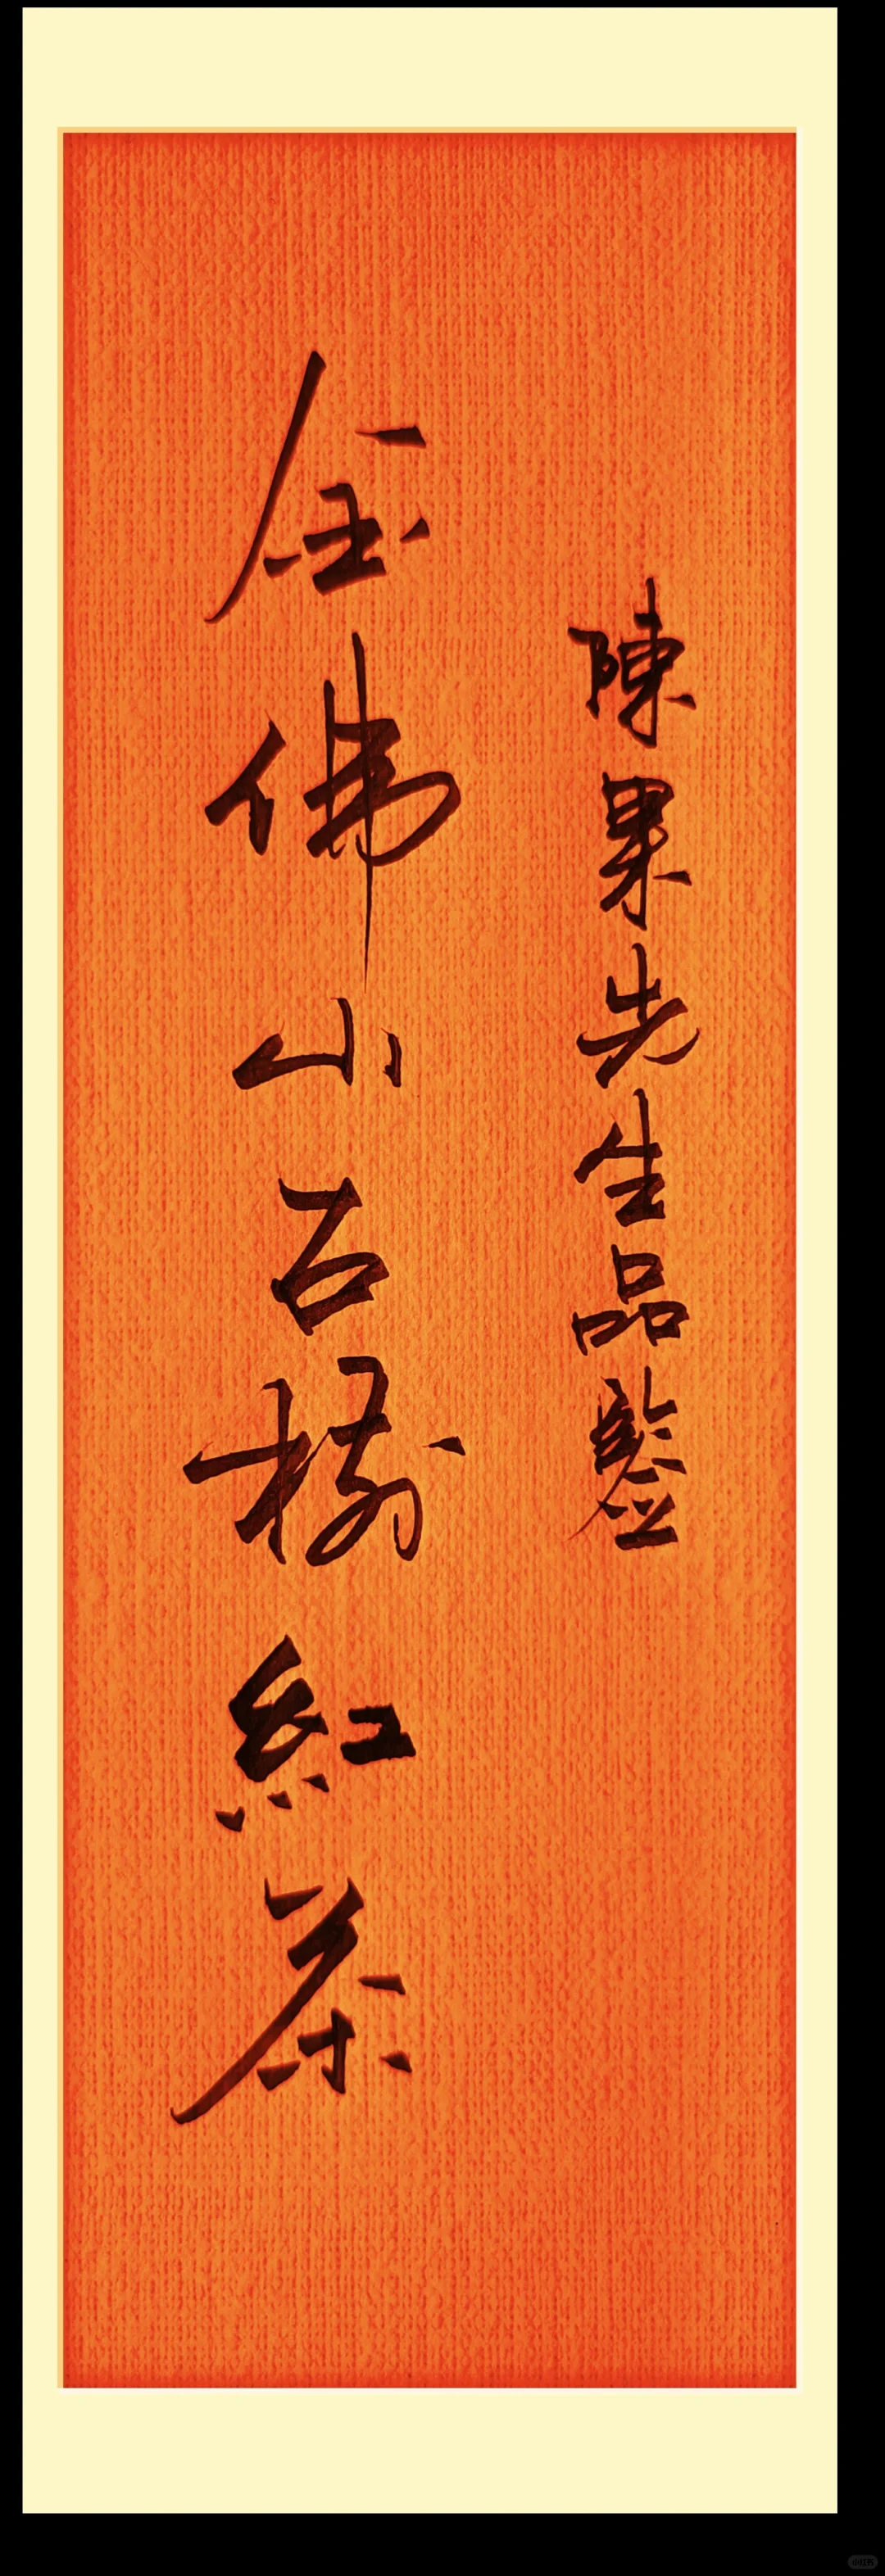 陳果先生品鑒
金佛山古樹紅茶